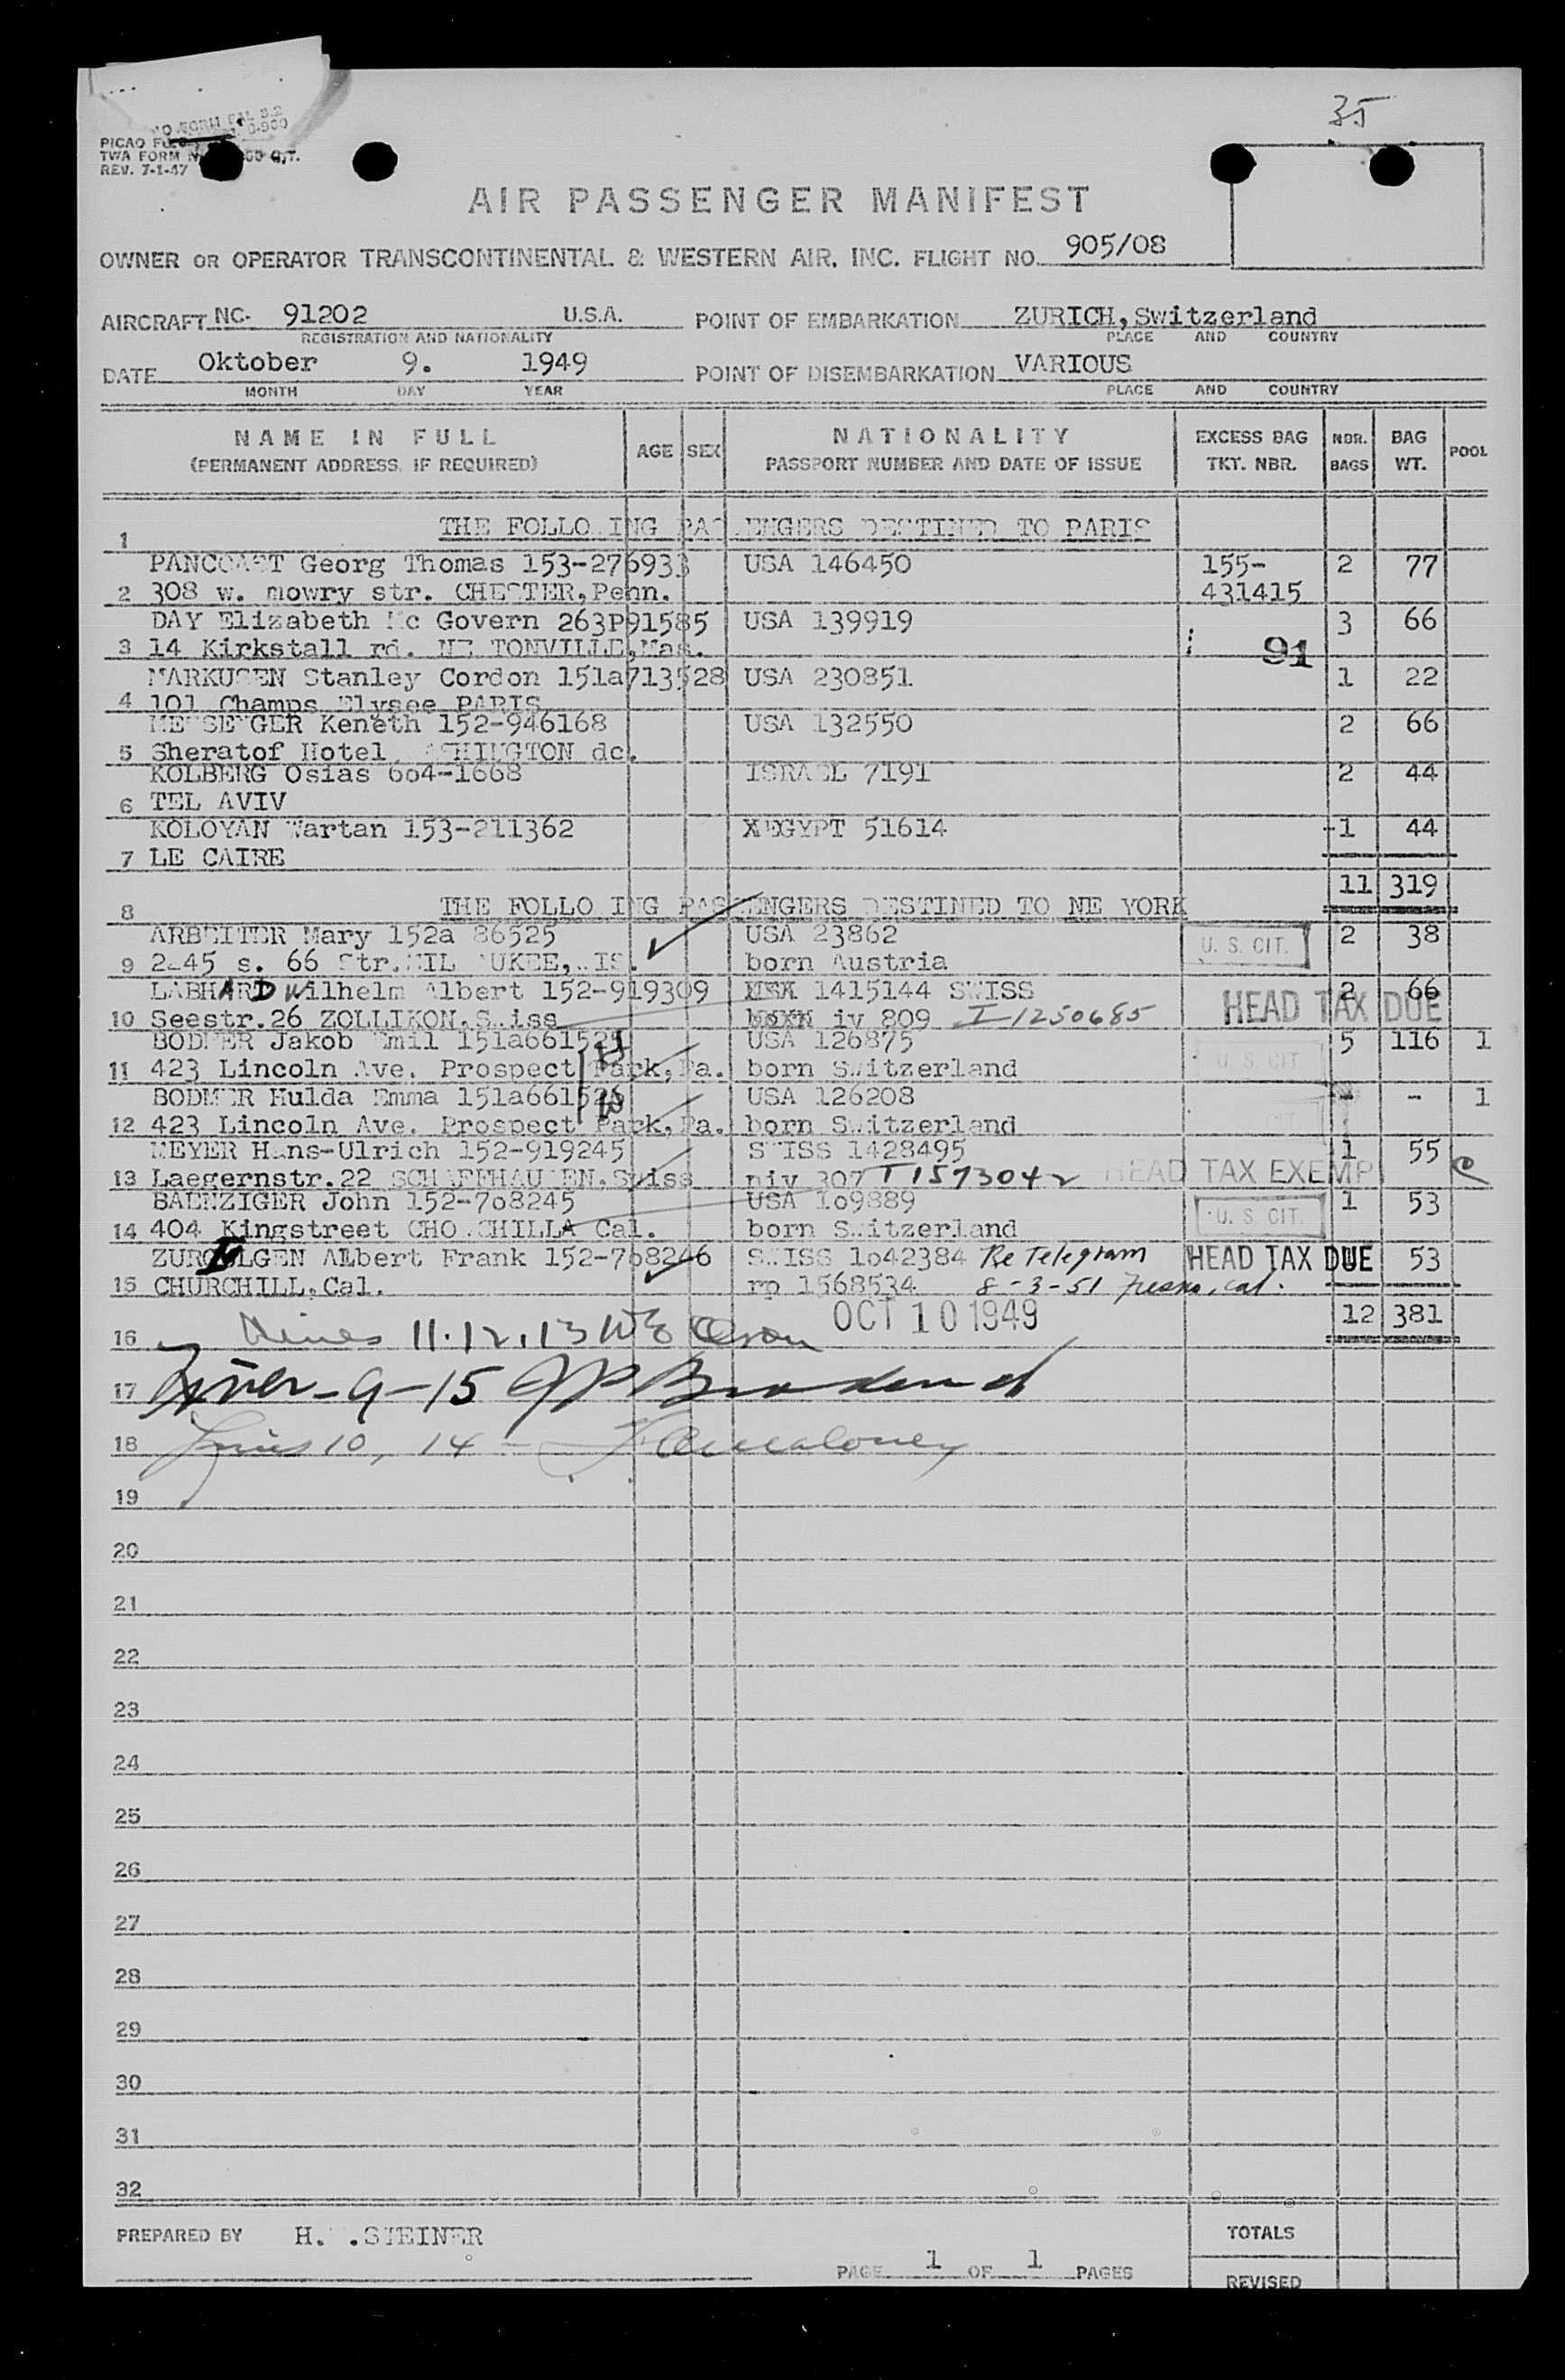 35
PICAO
TWA FORM
REV. 7-1-47
AIR PASSENGER MANIFEST
OWNER OR OPERATOR TRANSCONTINENTAL & WESTERN AIR, INC. FLIGHT NO. 905/08
AIRCRAFT NC- 91202 U.S.A. POINT OF EMBARKATION ZURICH, Switzerland
REGISTRATION AND NATIONALITY PLACE AND COUNTRY
DATE Oktober 9. 1949 POINT OF DISEMBARKATION VARIOUS
MONTH DAY YEAR PLACE AND COUNTRY
NAME IN FULL AGE SEX NATIONALITY EXCESS BAG NBR. BAG POOL
(PERMANENT ADDRESS, IF REQUIRED) PASSPORT NUMBER AND DATE OF ISSUE TKT. NBR. BAGS WT.
1 THE FOLLO ING PAS ENGERS DESTINED TO PARIS
PANCOAST Georg Thomas 153-276933 USA 146450 155- 2 77
2 308 w. mowry str. CHESTER, Penn. 431415
DAY Elizabeth Mc Govern 263P91585 USA 139919 3 66
3 14 Kirkstall rd. NE TONVILLE, Mas. 91
MARKUSEN Stanley Cordon 151a713528 USA 230851 1 22
4 101 Champs Elysee PARIS
MESSENGER Keneth 152-946168 USA 132550 2 66
5 Sheratof Hotel, ASHINGTON dc.
KOLBERG Osias 6o4-1668 ISRAEL 7191 2 44
6 TEL AVIV
KOLOYAN Wartan 153-211362 XEGYPT 51614 1 44
7 LE CAIRE
11 319
8 THE FOLLO ING PASSENGERS DESTINED TO NE YORK
ARBEITER Mary 152a 86525 USA 23862 U. S. CIT. 2 38
9 45 s. 66 Str. MIL UKEE, IS. born Austria
LABHARD Wilhelm Albert 152-919309 1415144 SWISS 2 66
10 Seestr.26 ZOLLIKON, S iss iv 809 I-1250685 HEAD TAX DUE
BODMER Jakob Emil 151a661525 USA 126875 5 116 1
11 423 Lincoln Ave. Prospect Park, Pa. born Switzerland U. S. CIT
BODMER Hulda Emma 151a661526 USA 126208 - - 1
12 423 Lincoln Ave. Prospect Park, Pa. born Switzerland
MEYER Hans-Ulrich 152-919245 SWISS 1428495 1 55
13 Laegernstr.22 SCHAFFHAUSEN, Swiss niv 307 I 1573042 HEAD TAX EXEMP
BAENZIGER John 152-7o8245 USA 1o9889 1 53
14 404 Kingstreet CHO CHILLA Cal. born Switzerland U. S. CIT.
ZURFLGEN Albert Frank 152-7o8246 SWISS 1o42384 Re Telegram HEAD TAX DUE 53
15 CHURCHILL, Cal. rp 1568534 8-3-51 Fresno, Cal.
16 Lines 11.12.13 OCT 10 1949 12 381
17 9-15
18 Lines 10, 14 - Maloney
19
20
21
22
23
24
25
26
27
28
29
30
31
32
PREPARED BY H. .STEINER TOTALS
PAGE 1 OF 1 PAGES REVISED